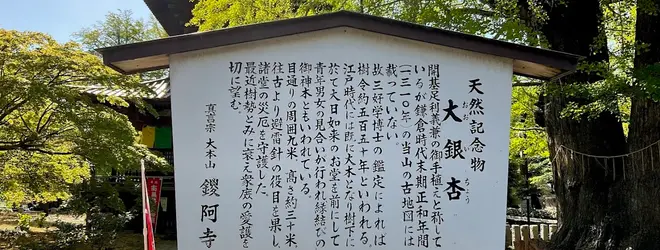 天然記念物
大銀杏
おおいちょう
開基足利義兼の御手植えと称して
いるが鎌倉時代末期正和年間
(一三一〇年)の当山の古地図には
載っていない。
故三好学博士の鑑定によれば
樹令約五百五十年といわれる。
江戸時代には既に大木となり樹下に
於て大日如来のお堂を前にして
青年男女の見合いが行われ縁結びの
御神木ともいわれている。
目通りの周囲九米、高さ約三十米、
往古より避雷針の役目を果し、
諸堂の災厄を守護した。
最近樹勢とみに衰え家族の愛護を
切に望む。
真言宗 大本山 鑁阿寺